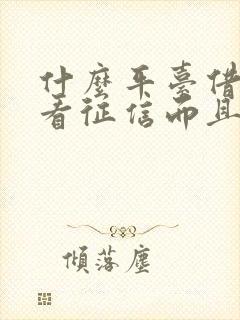 什麼平臺借
看征信而且
傾落塵